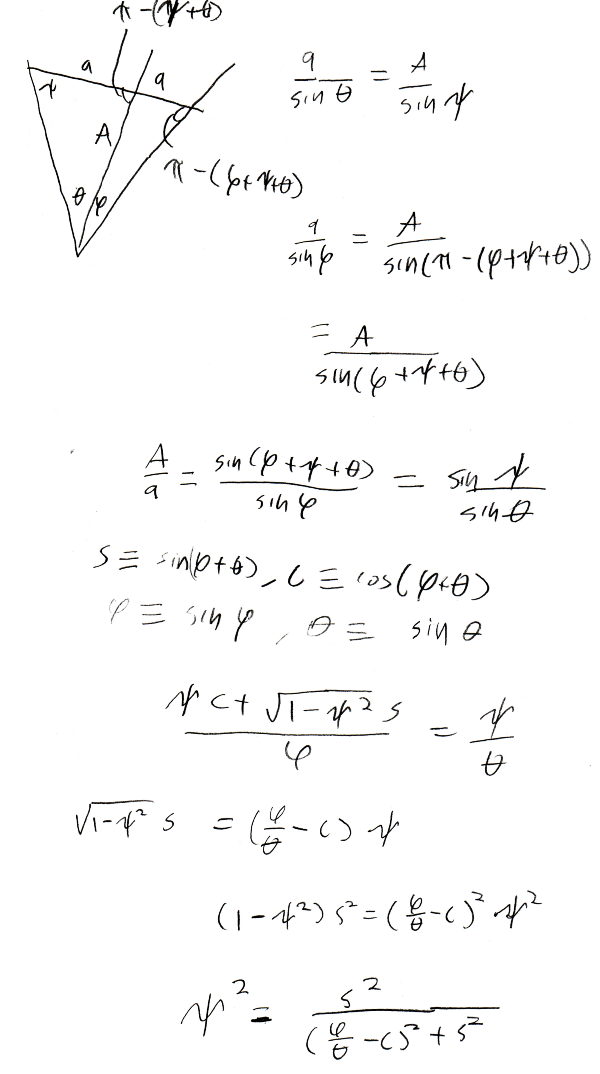 π-(ψ+θ)
a
ψ
a
a/sin θ = A/sin ψ
A
π-(φ+ψ+θ)
θ φ
a/sin φ = A/sin(π-(φ+ψ+θ))
= A/sin(φ+ψ+θ)
A/a = sin(φ+ψ+θ)/sin φ = sin ψ/sin θ
s ≡ sin(φ+θ), c ≡ cos(φ+θ)
φ ≡ sin φ, θ ≡ sin θ
(ψ c + √(1-ψ²) s)/φ = ψ/θ
√(1-ψ²) s = (φ/θ - c) ψ
(1-ψ²) s² = (φ/θ - c)² ψ²
ψ² = s²/((φ/θ - c)² + s²)